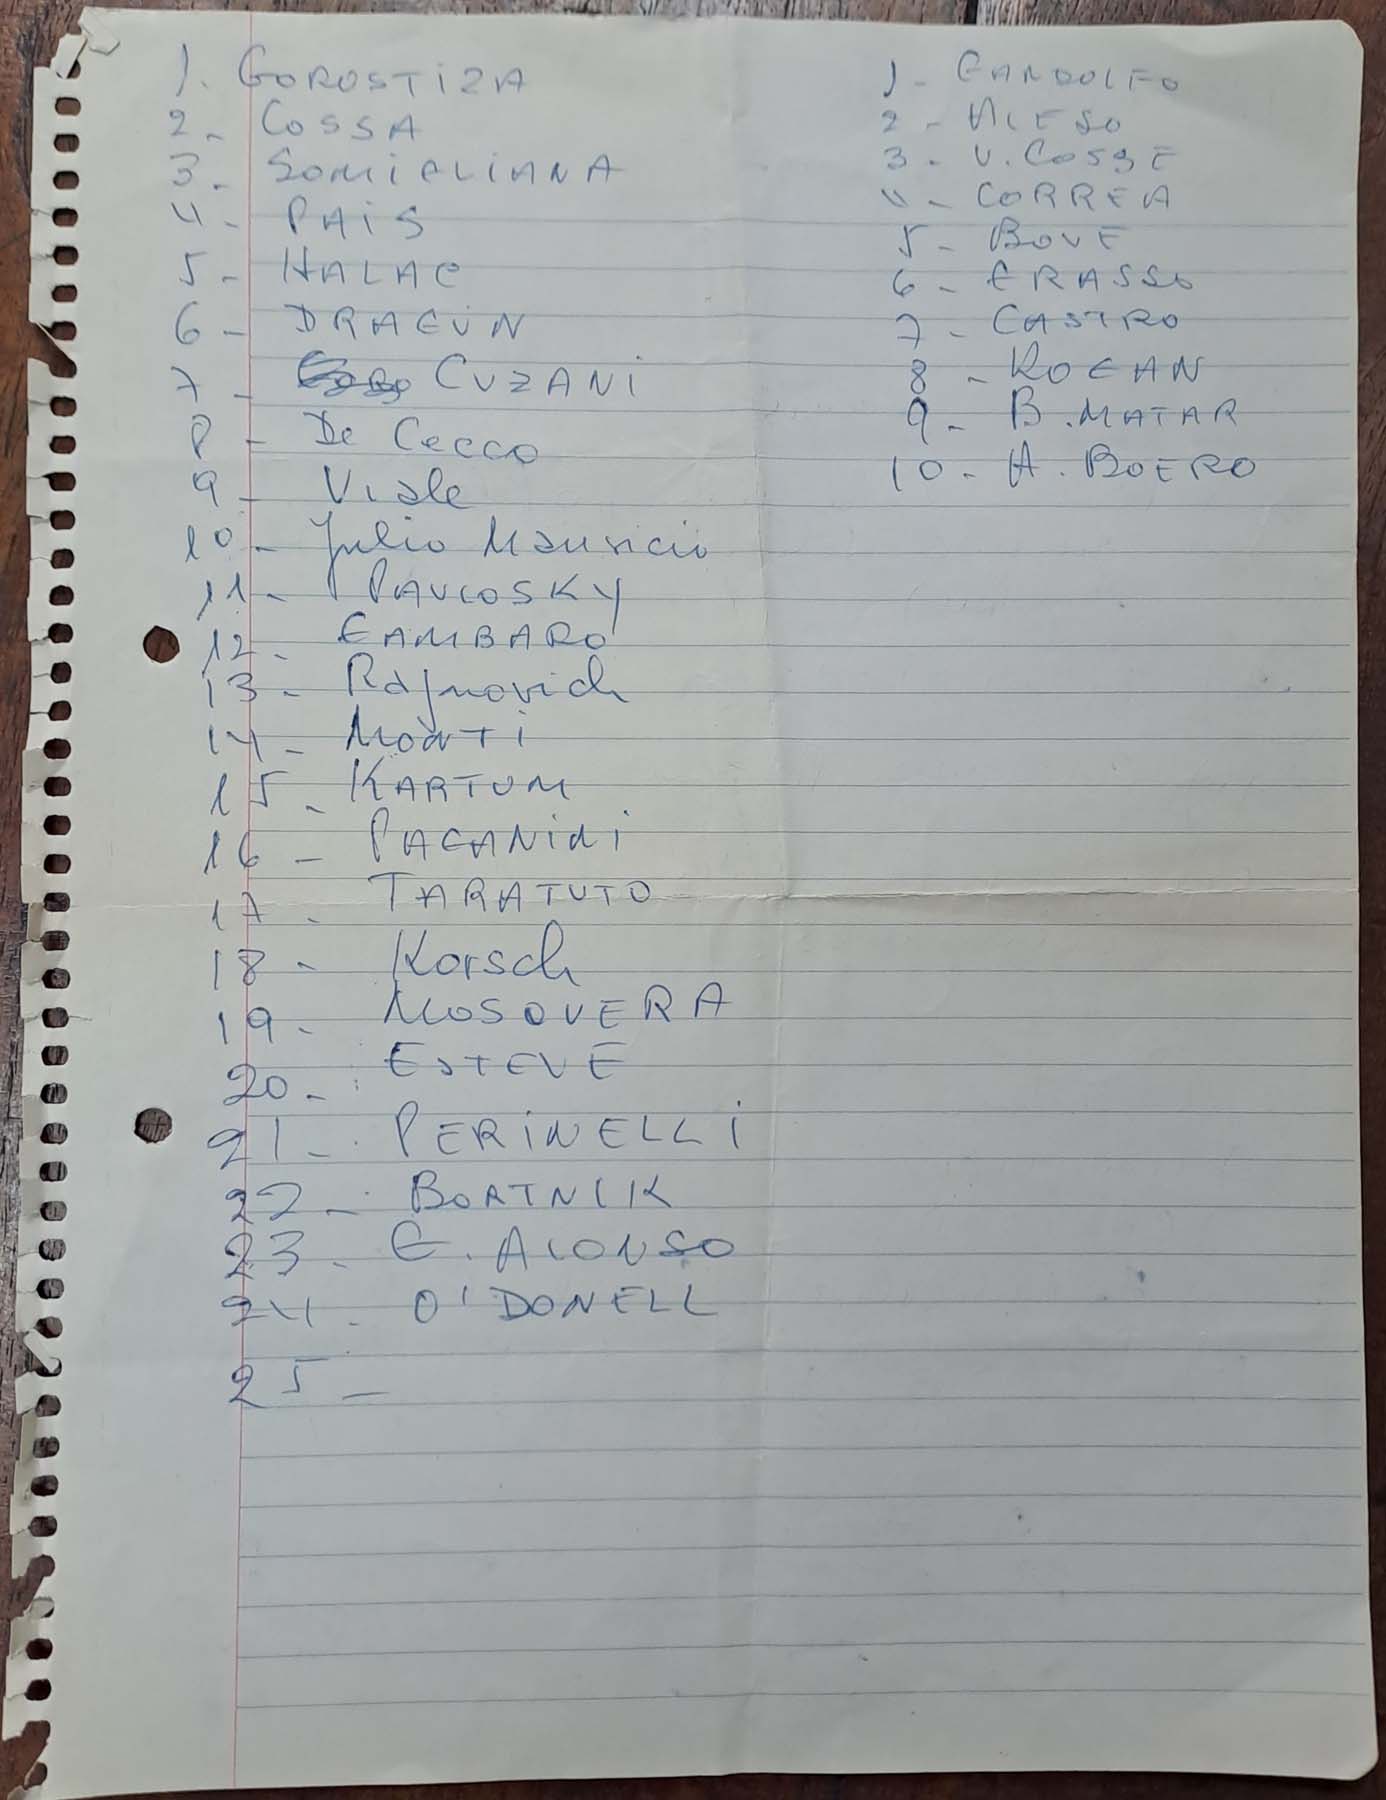 1. GOROSTIZA
2- COSSA
3- SOMIGLIANA
4- PAIS
5- HALAC
6- DRAGUN
7- CUZANI
8- De Cecco
9- Viale
10- Julio Mauricio
11- PAVLOSKY
12- GAMBARO
13- Rajnovich
14- MONTI
15- KARTUM
16- PAGANINI
17- TARATUTO
18- Korsch
19- MOSQUERA
20- ESTEVE
21- PERINELLI
22- BORTNIK
23- E. ALONSO
24- O'DONELL
25-
1- GANDOLFO
2- ALESO
3- V. COSSE
4- CORREA
5- BOVE
6- GRASSO
7- CASTRO
8- ROGAN
9- B. MATAR
10- A. BOERO